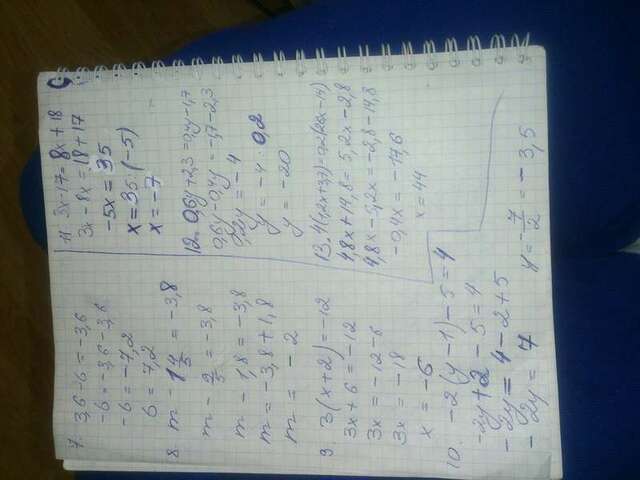 7. 3,6-b=-3,6
-b=-3,6-3,6
-b=-7,2
b=7,2
8. m-1 4/5=-3,8
m-9/5=-3,8
m-1,8=-3,8
m=-3,8+1,8
m=-2
9. 3(x+2)=-12
3x+6=-12
3x=-12-6
3x=-18
x=-6
10. -2(y-1)-5=4
-2y+2-5=4
-2y=4-2+5
-2y=7 y=-7/2=-3,5
11. 3x-17=8x+18
3x-8x=18+17
-5x=35
x=35:(-5)
x=-7
12. 0,6y+2,3=0,4y-1,7
0,6y-0,4y=-1,7-2,3
0,2y=-4
y=-4:0,2
y=-20
13. 4(1,2x+3,7)=0,2(26x-14)
4,8x+14,8=5,2x-2,8
4,8x-5,2x=-2,8-14,8
-0,4x=-17,6
x=44